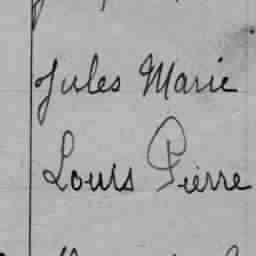 Jules Marie
Louis Pierre